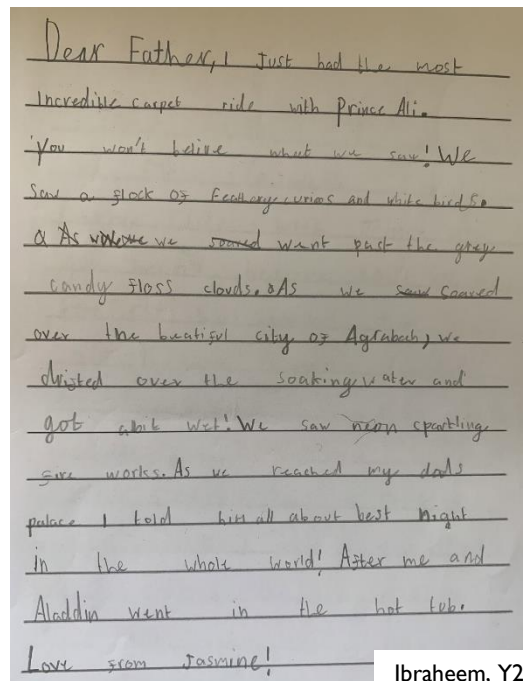 Dear Father, I just had the most
Incredible carpet ride with Prince Ali.
You won't belive what we saw! We
Saw a flock of Feathery, curios and white birds.
As we went past the grey
candy floss clouds. As we soared
over the beatiful city of Agrabach, we
drifted over the soaking water and
got abit wet! We saw neon sparkling
fire works. As we reached my dads
palace I told him all about best night
in the whole world! After me and
Aladdin went in the hot tub.
Love from Jasmine!
Ibraheem, Y2